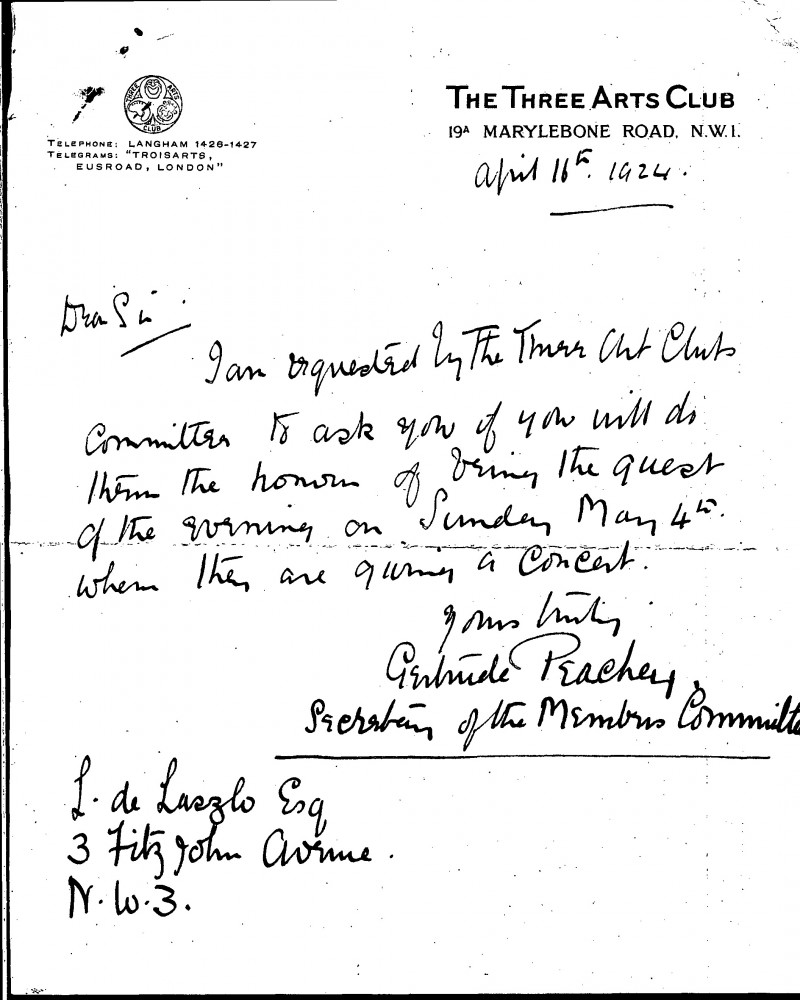 THREE ARTS
CLUB
TELEPHONE: LANGHAM 1426-1427
TELEGRAMS: "TROISARTS,
EUSROAD, LONDON"
THE THREE ARTS CLUB
19A MARYLEBONE ROAD, N.W.1.
April 16th. 1924.
Dear Sir
I am requested by The Three Art Clubs
Committee to ask you if you will do
them the honour of being the guest
of the evening on Sunday May 4th.
when they are giving a Concert.
Yours truly
Gertrude Peachey.
Secretary of the Members Committe
L. de Laszlo Esq
3 Fitz John Avenue.
N.W.3.